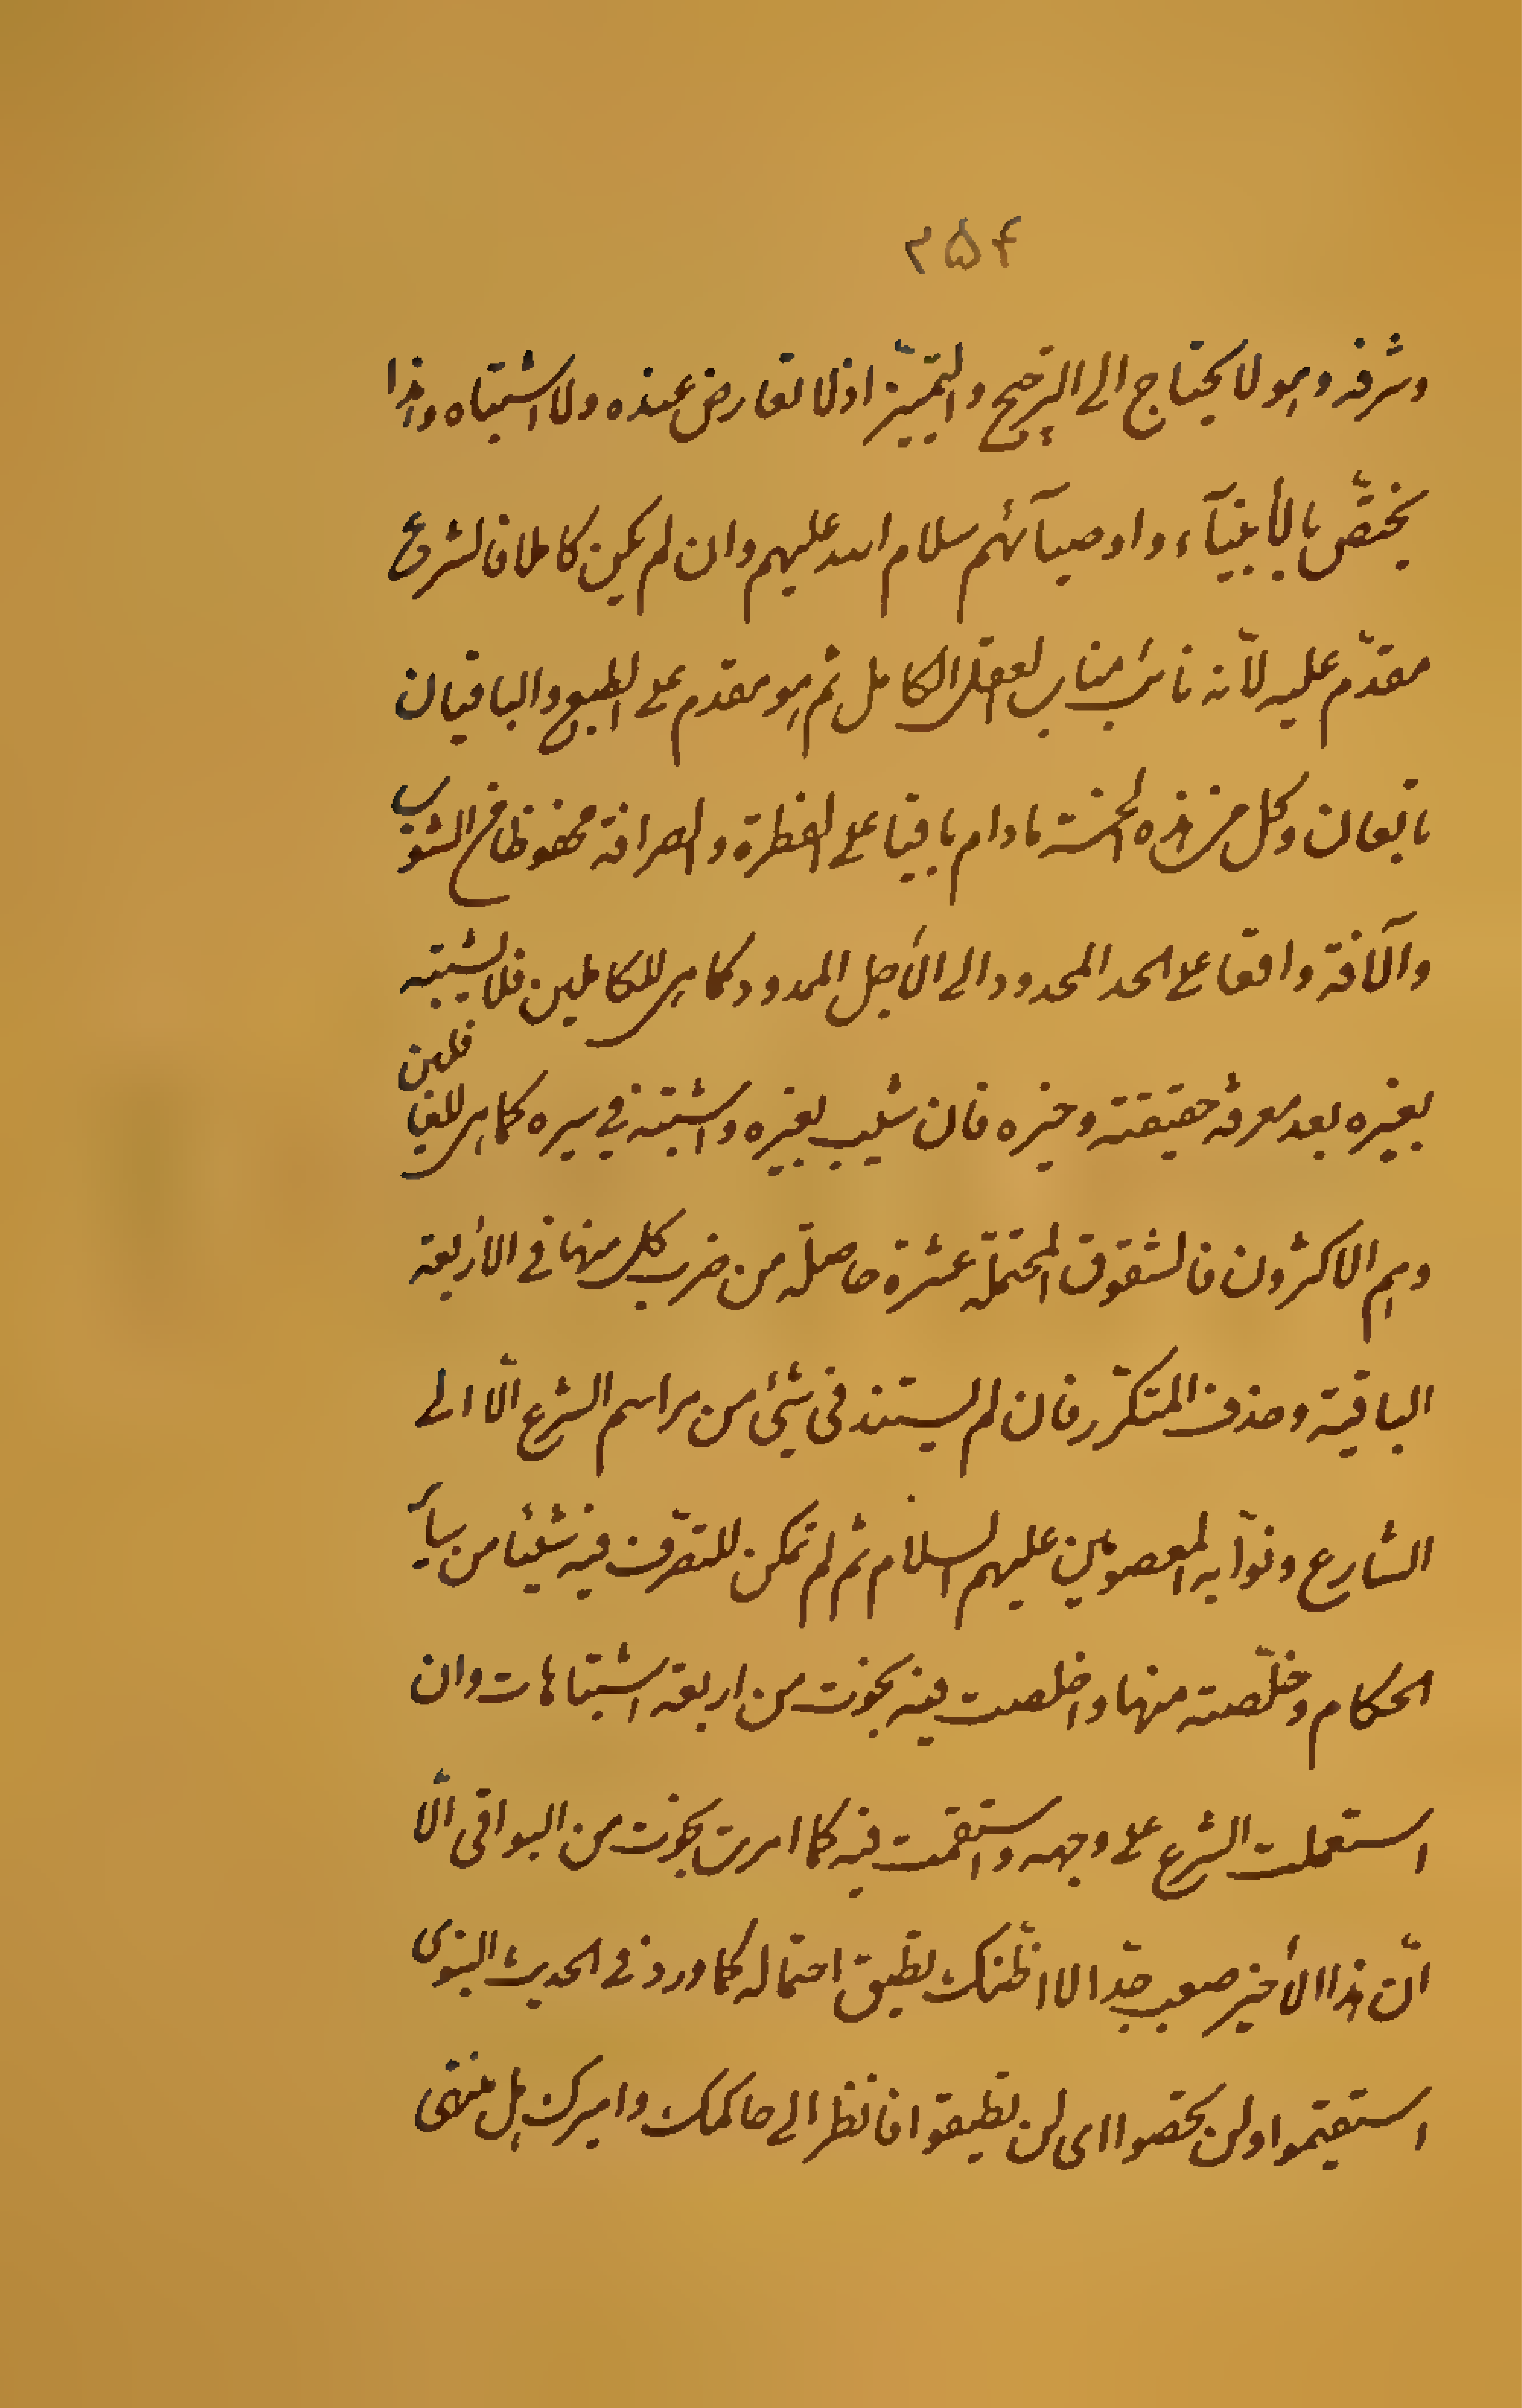 ۳۵۴
وشرفه وهو لا يحتاج الى الترجيح والتميّيز اذ لا تعارض عنده ولا اشتباه وهذا
يختصّ بالأنبيآء واوصيآئهم سلام الله عليهم وان لم يكن كاملا فالشرع
مقدّم عليه لأنه نائب مناب العقل الكامل ثم هو مقدم على الطبع والباقيان
تابعان وكل من هذه الخمسة مادام باقيا على الفطرة والصرافة محفوظا من الشوب
والآفة واقفا على الحد المحدود الى الأجل الممدود كما هى للكاملين فلا يشتبه
بغيره بعد معرفة حقيقته وخيره فان شيب بغيره واشتبه في سيره كما هى للغافلين
وهم الاكثرون فالشقوق المحتملة عشرة حاصلة من ضرب كل منها في الأربعة
الباقية وحذف المتكرّر فان لم يستند فى شئ من مراسم الشرع الّا الى
الشارع ونوّابه المعصومين عليهم السلام ثم لم تمكن للتصرّف فيه شيئا من سيأر
الحكام وخلّصته منها واخلصت فيه نجوت من اربعة اشتباهات وان
استعملت الشرع على وجهه واستقمت فيه كما امرت نجوت من البواقى الّا
انّ هذا الأخير صعب جدّا لا اظنّك تطيق احتماله كما ورد في الحديث النبوى
استقيموا ولن تحصوا اى لن تطيقوا فانظر الى حاكمك واميرك هل هو